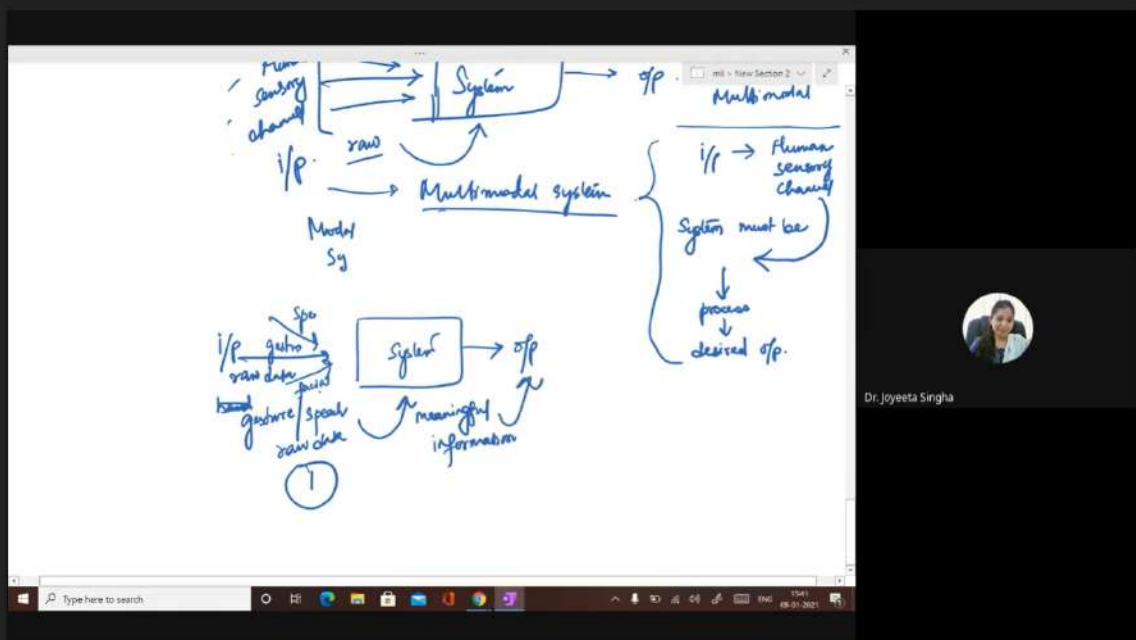 sensory
channel
System
o/p
mil > New Section 2
Multimodal
i/p.
raw
Multimodal system
i/p → Human
sensory
channel
System must be
process
desired o/p.
Modal
Sy
Spe
i/p
gestro
raw data
facial
gesture / speak
raw data
1
System
o/p
meaningful
information
Dr. Joyeeta Singha
Type here to search
ENG
15:41
09-01-2021